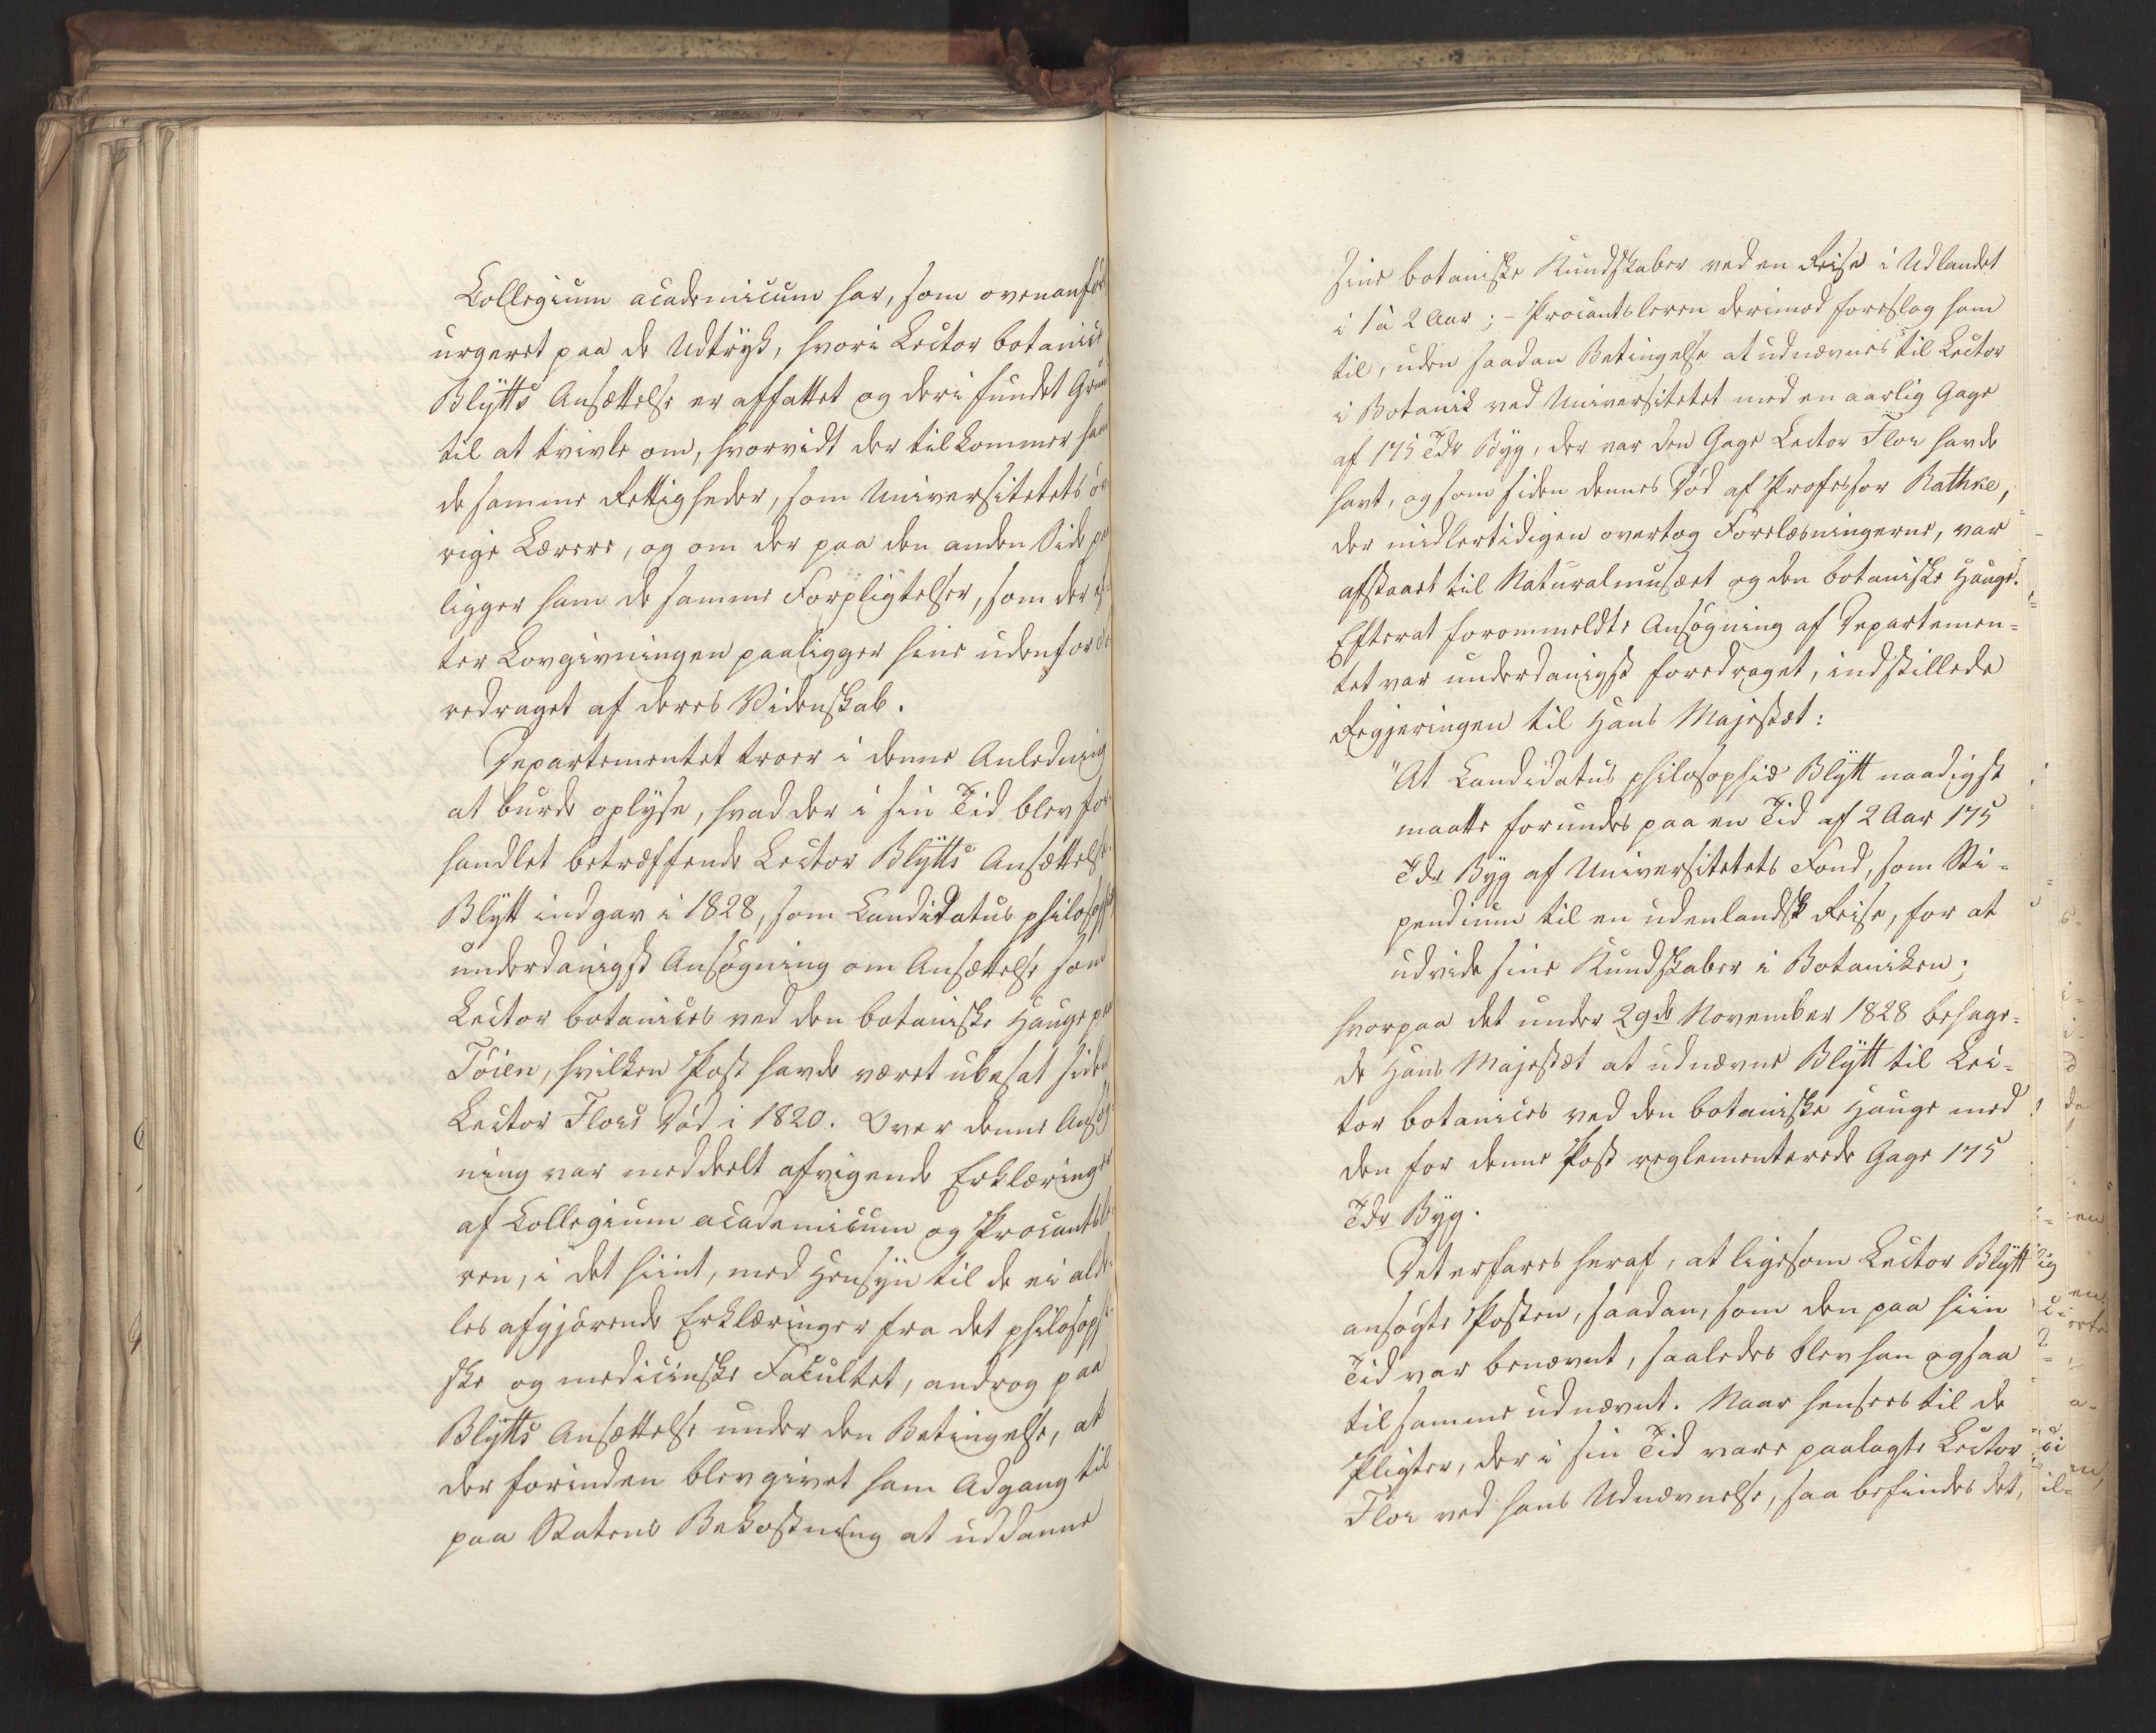 Collegium academicum har, som ovenanför
urgeret paa de Udtryk, hvori Lector botanices
Blytts Ansættelse er affattet og deri fundet Grund
til at tvivle om, hvorvidt der tilkommer ham
de samme Rettigheder, som Universitetets öv-
rige Lærere, og om der paa den anden Side paa
ligger ham de samme Forpligtelser, som der ef-
ter Lovgivningen paaligger hine udenfor
redraget af deres Videnskab.
Departementet troer i denne Anledning
at burde oplyse, hvad der i sin Tid blev for-
handlet betræffende Lector Blytts Ansættelse.
Blytt indgav i 1828, som Candidatus philosophiæ
underdanigst Ansögning om Ansættelse som
Lector botanices ved den botaniske Hauge paa
Töien, hvilken Post havde været ubesat siden
Lector Flors Död i 1820. Over denne Ansög-
ning var meddeelt afvigende Erklæringer
af Collegium academicum og Procantsle-
ren, i det hiint, med Hensyn til de ei alde-
les afgjörende Erklæringer fra det philosophi-
ske og medicinske Facultet, androg paa
Blytts Ansættelse under den Betingelse, at
der forinden blev givet ham Adgang til
paa Statens Bekostning at uddanne
sine botaniske Kundskaber ved en Reise i Udlandet
i 1 à 2 Aar; - Procantsleren derimod foreslog ham
til, uden saadan Betingelse at udnævnes til Lector
i Botanik ved Universitetet med en aarlig Gage
af 175 Tdr Byg, der var den Gage Lector Flor havde
havt, og som siden dennes Död af Professor Rathke,
der midlertidigen overtog Forelæsningerne, var
afstaaet til Naturalmusæet og den botaniske Hauge.
Efterat forommeldte Ansögning af Departemen-
tet var underdanigst foredraget, indstillede
Regjeringen til Hans Majestæt:
"At Candidatus philosophiæ Blytt naadigst
maatte forundes paa en Tid af 2 Aar 175
Tdr Byg af Universitetets Fond, som Sti-
pendium til en udenlandsk Reise, for at
udvide sine Kundskaber i Botaniken;
hvorpaa det under 29de November 1828 behage-
de Hans Majestæt at udnævne Blytt til Lec-
tor botanices ved den botaniske Hauge med
den for denne Post reglementerede Gage 175
Tdr Byg.
Det erfares heraf, at ligesom Lector Blytt
ansögte Posten, saadan, som den paa hiin
Tid var benævnt, saaledes blev han ogsaa
til samme udnævnt. Naar hensees til de
Pligter, der i sin Tid vare paalagte Lector
Flor ved hans Udnævnelse, saa befindes det,